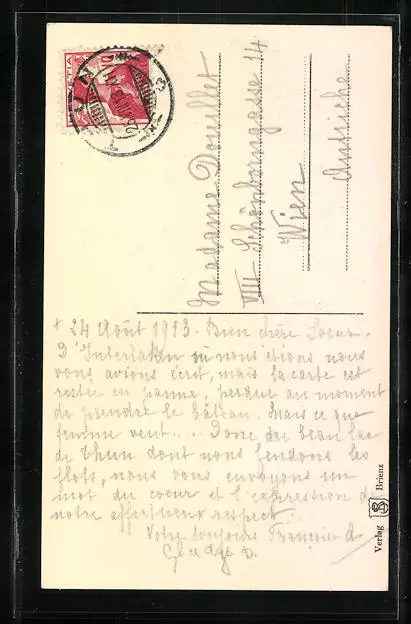 Madame Douillet
VIII Schönborngasse 14
Wien
Autriche
+ 24 Août 1913. Bien chère Soeur.
D'Interlaken où nous étions nous
vous avions écrit, mais la carte est
restée en panne, perdue au moment
de prendre le bâteau. Mais ce que
femme veut.... Donc du beau lac
de Thun dont nous fendons les
flots, nous vous envoyons un
mot du coeur et l'expression de
notre affectueux respect
Votre toujours Françoise &
Gladys D.
Verlag Brienz
HELVETIA
THUN